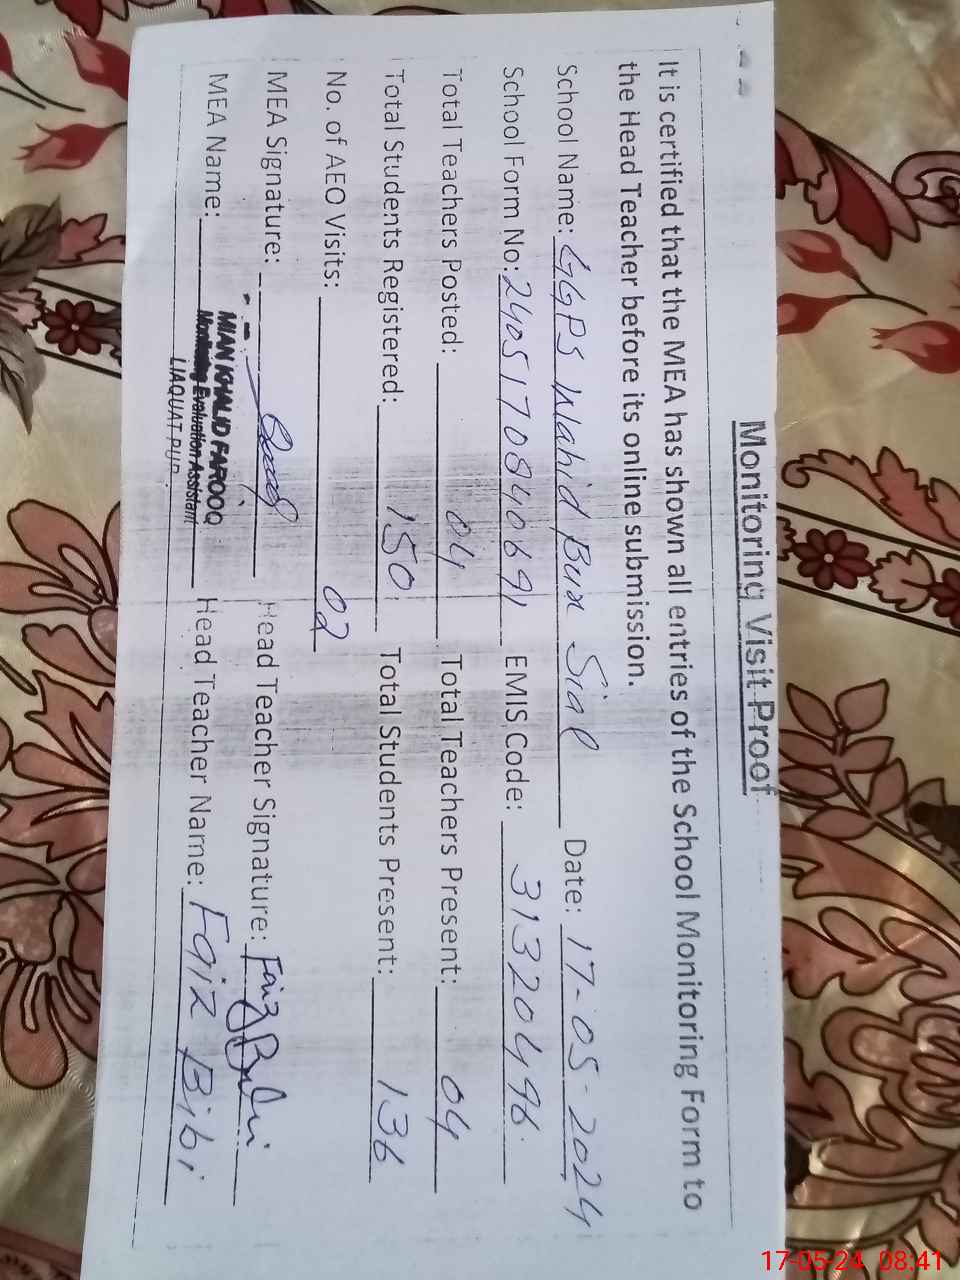 Monitoring Visit Proof
It is certified that the MEA has shown all entries of the School Monitoring Form to
the Head Teacher before its online submission.
School Name: GGPS Wahid Bux Sial Date: 17-05-2024
School Form No: 240517084069 EMIS Code: 31320496
Total Teachers Posted: 04 Total Teachers Present: 04
Total Students Registered: 150 Total Students Present: 136
No. of AEO Visits: 02
MEA Signature: Head Teacher Signature: Faiz Bibi
MEA Name: MIAN KHALID FAROOQ Head Teacher Name: Faiz Bibi
Monitoring Evaluation Assistant
LIAQUAT PUR
17-05-24 08:41